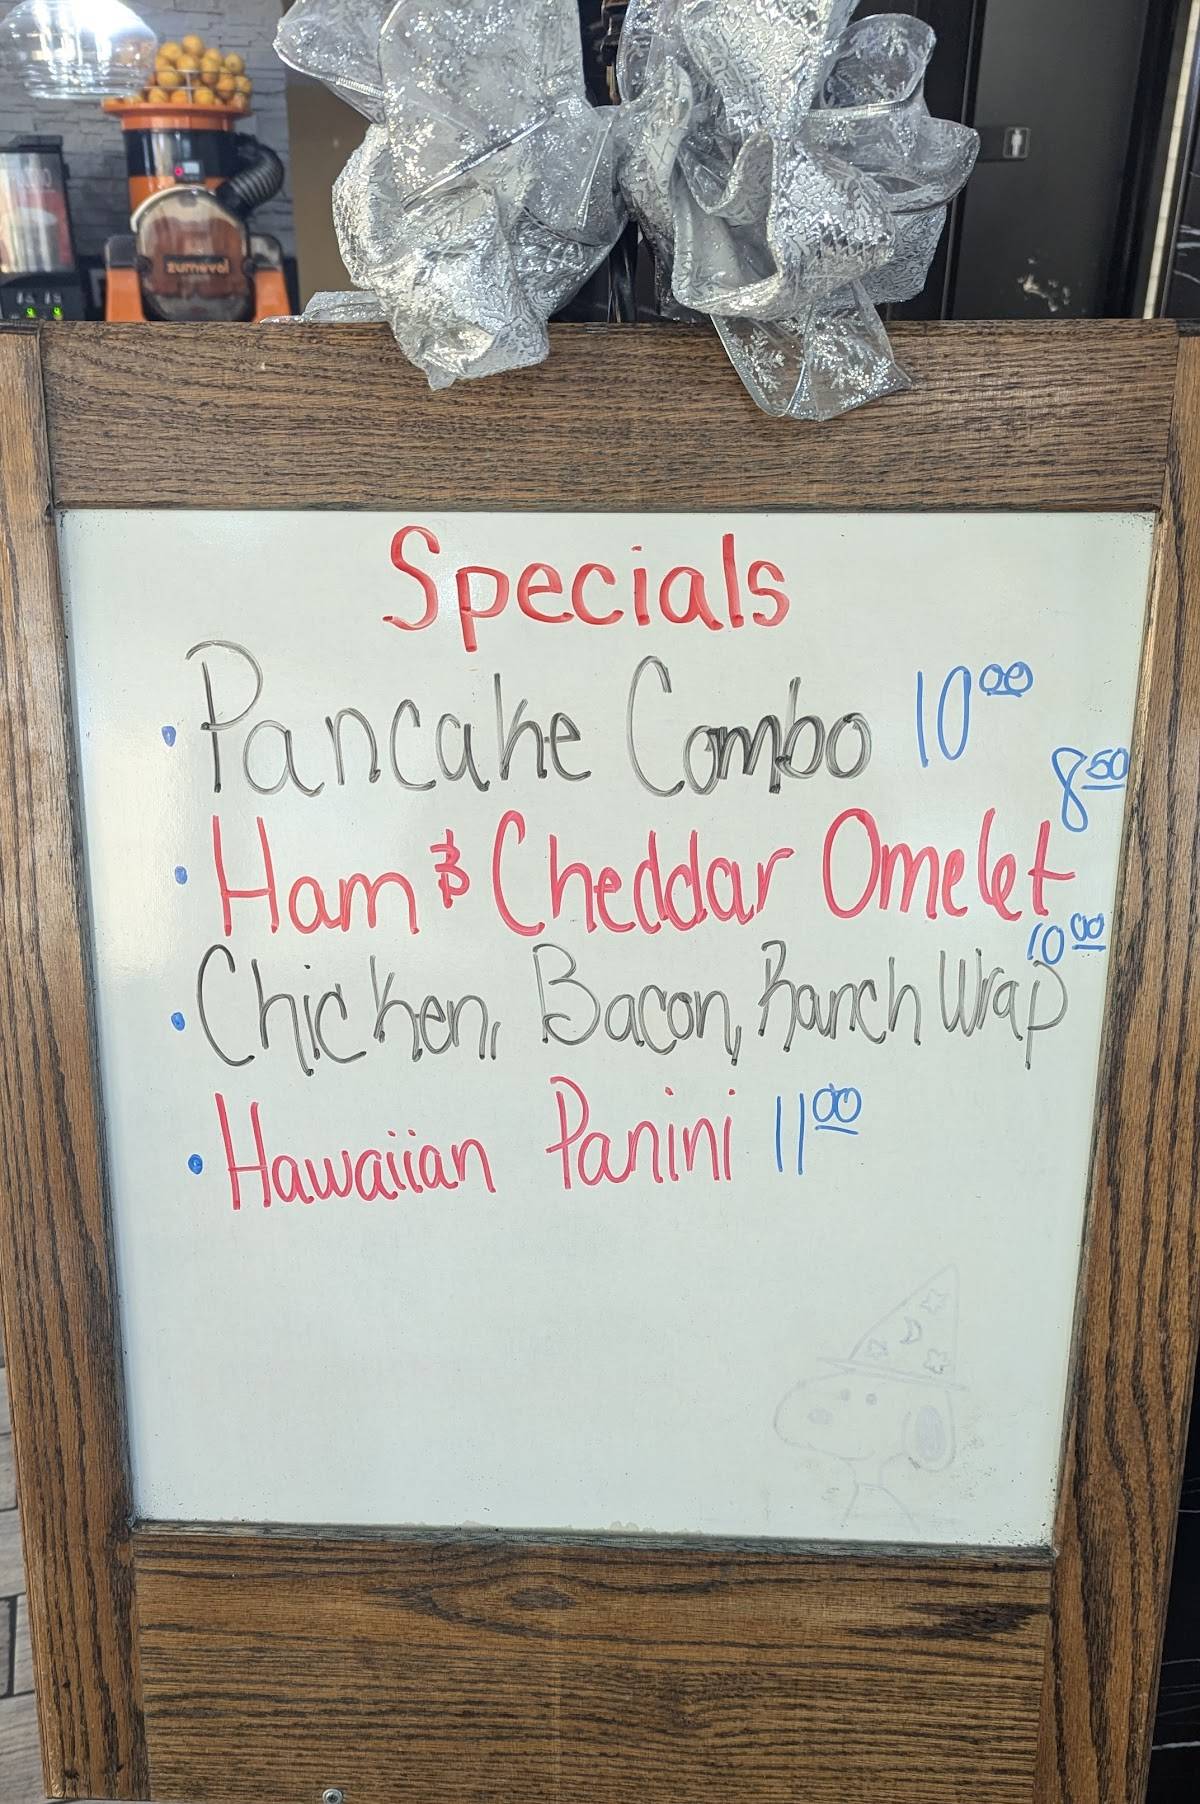 zumoval
Specials
• Pancake Combo 10.00
8.50
• Ham & Cheddar Omelet
10.00
• Chicken, Bacon, Ranch Wrap
• Hawaiian Panini 11.00